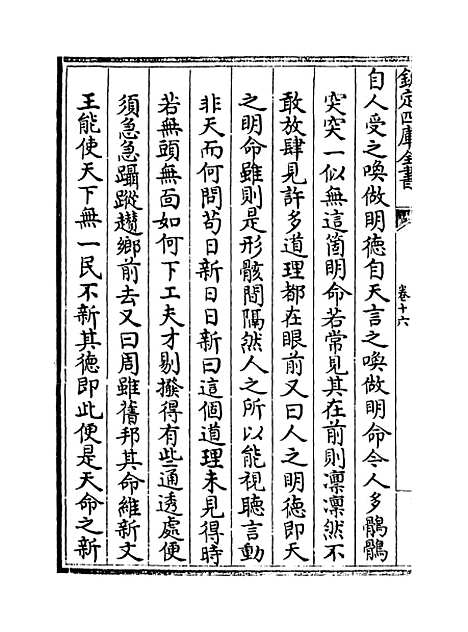 欽定四庫全書
卷十六
自人受之喚做明徳自天言之喚做明命今人多鶻鶻
突突一似無這箇明命若常見其在前則凛凛然不
敢放肆見許多道理都在眼前又曰人之明徳即天
之明命雖則是形骸間隔然人之所以能視聽言動
非天而何問茍日新日日新曰這個道理未見得時
若無頭無面如何下工夫才剔撥得有些通透處便
須急急躡蹤趲鄉前去又曰周雖舊邦其命維新文
王能使天下無一民不新其徳即此便是天命之新